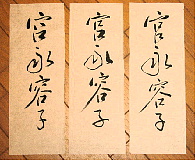 宮永容子
宮永容子
宮永容子